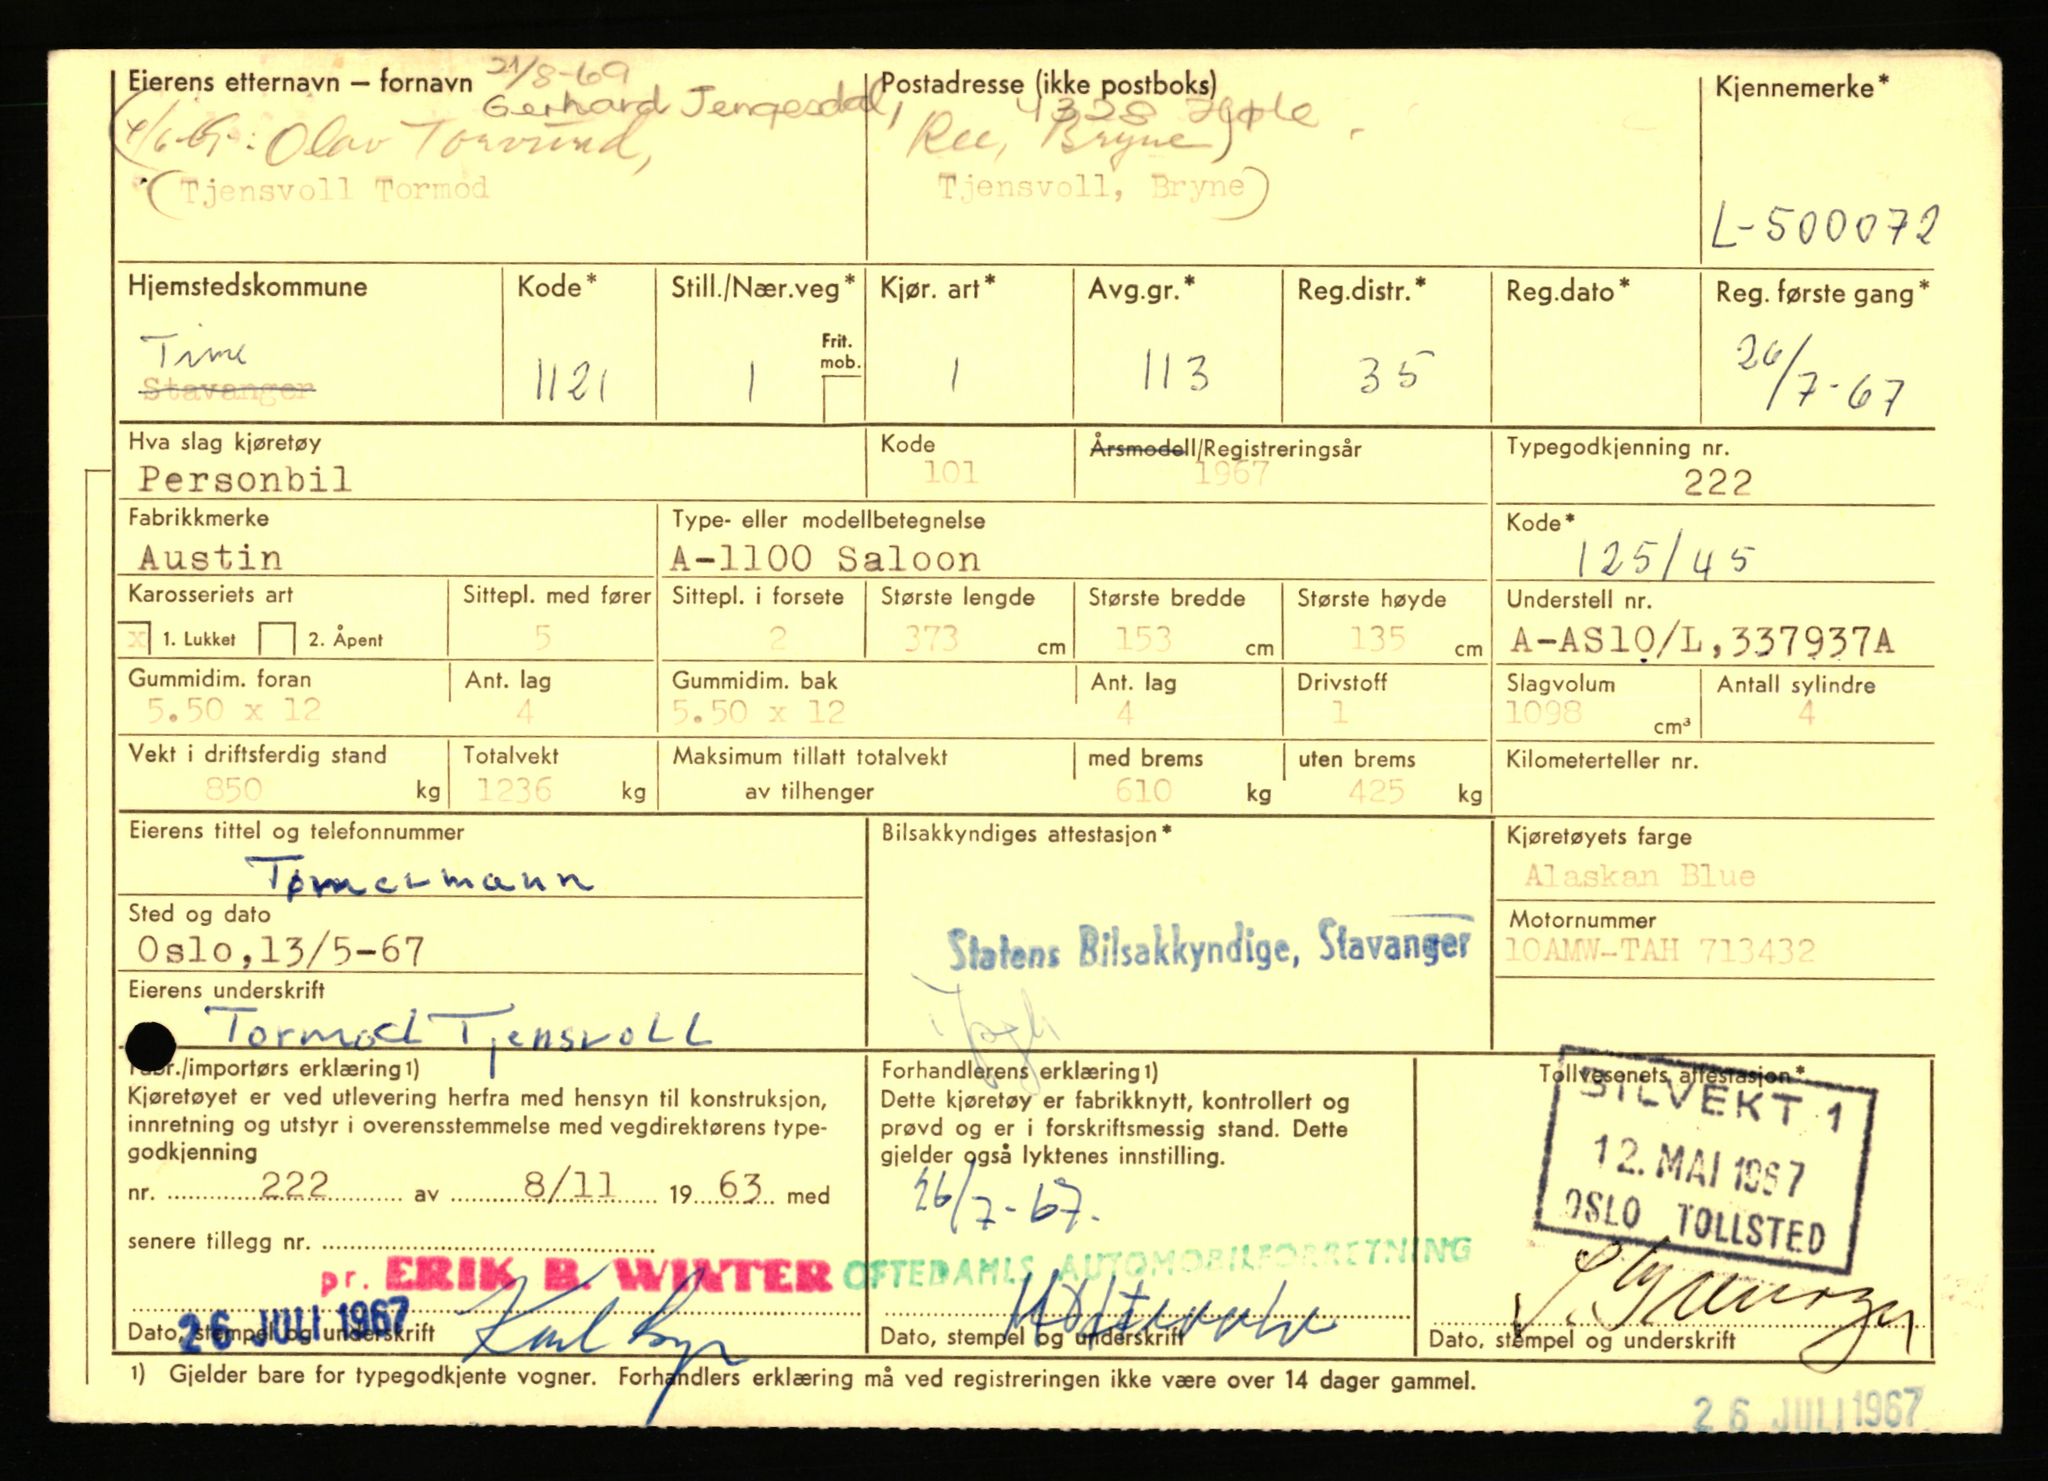 Eierens etternavn — fornavn 21/8-69 Postadresse (ikke postboks) Kjennemerke*
Gerhard Jengesdal, 4328 Hole.
Olav Torvund, Ree, Bryne)
(Tjensvoll Tormod Tjensvoll, Bryne)
L-500072
Hjemstedskommune Kode* Still./Nær.veg* Kjør. art* Avg.gr.* Reg.distr.* Reg.dato* Reg. første gang*
Time Frit. mob. 26/7-67
Stavanger 1121 1 1 113 35
Hva slag kjøretøy Kode Årsmodell/Registreringsår Typegodkjenning nr.
Personbil 101 1967 222
Fabrikkmerke Type- eller modellbetegnelse Kode*
Austin A-1100 Saloon 125/45
Karosseriets art Sittepl. med fører Sittepl. i forsete Største lengde Største bredde Største høyde Understell nr.
x 1. Lukket 2. Åpent 5 2 373 cm 153 cm 135 cm A-AS10/L,337937A
Gummidim. foran Ant. lag Gummidim. bak Ant. lag Drivstoff Slagvolum Antall sylindre
5.50 x 12 4 5.50 x 12 4 1 1098 cm³ 4
Vekt i driftsferdig stand Totalvekt Maksimum tillatt totalvekt med brems uten brems Kilometerteller nr.
850 kg 1236 kg av tilhenger 610 kg 425 kg
Eierens tittel og telefonnummer Bilsakkyndiges attestasjon* Kjøretøyets farge
Tømmermann Alaskan Blue
Sted og dato Motornummer
Oslo,13/5-67 Statens Bilsakkyndige, Stavanger 10AMW-TAH 713432
Eierens underskrift
Tormod Tjensvoll
Fabr./importørs erklæring1) Forhandlerens erklæring1) Tollvesenets attestasjon*
Kjøretøyet er ved utlevering herfra med hensyn til konstruksjon, Dette kjøretøy er fabrikknytt, kontrollert og BILVEKT 1
innretning og utstyr i overensstemmelse med vegdirektørens type- prøvd og er i forskriftsmessig stand. Dette 12. MAI 1967
godkjenning gjelder også lyktenes innstilling. OSLO TOLLSTED
nr. 222 av 8/11 1963 med 26/7-67.
senere tillegg nr.
pr. ERIK B. WINTER OFTEDAHLS AUTOMOBILFORRETNING
26 JULI 1967
Dato, stempel og underskrift Dato, stempel og underskrift Dato, stempel og underskrift
1) Gjelder bare for typegodkjente vogner. Forhandlers erklæring må ved registreringen ikke være over 14 dager gammel.
26 JULI 1967